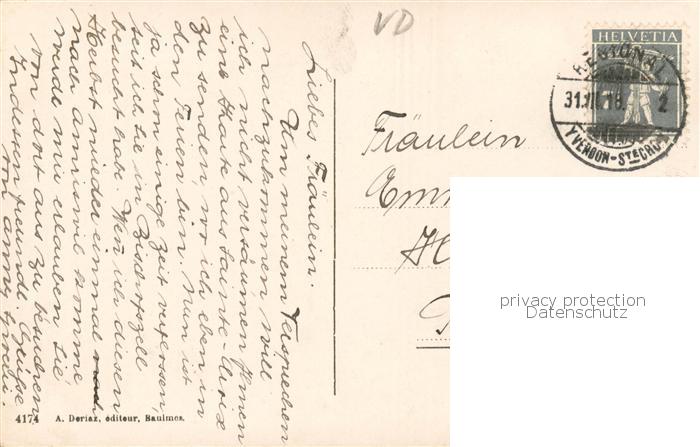 Liebes Fräulein.
Um meinem Versprechen
nachzukommen will
ich nicht versäumen Ihnen
eine Karte aus Sainte-Croix
zu senden, wo ich eben in
den Ferien bin. Nun ist
ja schon einige Zeit verflossen,
seit ich Sie in Bischofszell
besucht habe. Wen ich diesen
Herbst wieder einmal
nach Amriswil komme
werde mir erlauben Sie,
von dort aus zu besuchen.
Indessen freundl. Grüsse
von Anny
VD
HELVETIA
REGIONAL
31.VII.18. 2
YVERDON-STE CROIX
Fräulein
Em
H
4174 A. Deriaz, éditeur, Baulmes.
privacy protection
Datenschutz